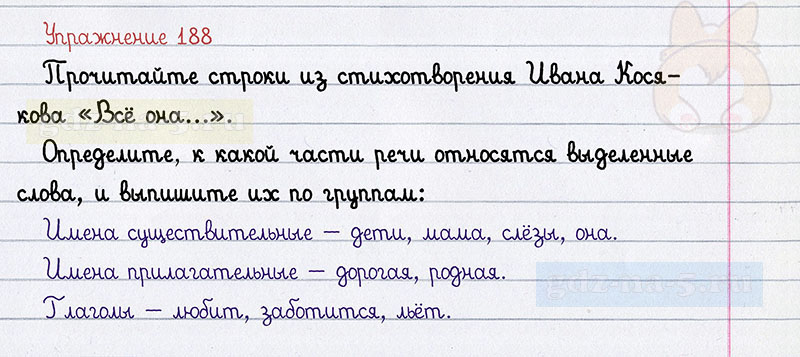 Упражнение 188
Прочитайте строки из стихотворения Ивана Кося-
кова «Всё она...».
Определите, к какой части речи относятся выделенные
слова, и выпишите их по группам:
Имена существительные – дети, мама, слёзы, она.
Имена прилагательные – дорогая, родная.
gdz-na-5.ru
Глаголы – любит, заботится, льёт.